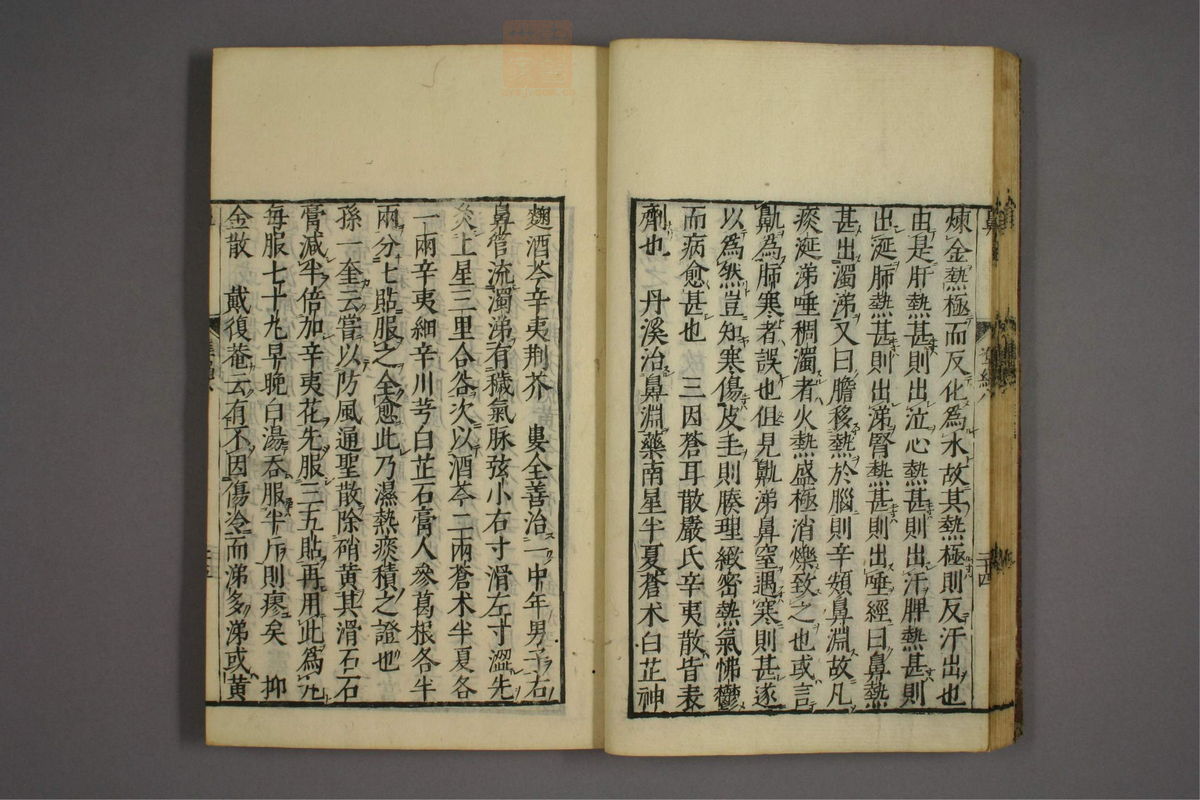 煉金熱極而反化爲水故其熱極則反汗出也
由是肝熱甚則出泣心熱甚則出汗脾熱甚則
出涎肺熱甚則出涕腎熱甚則出唾經曰鼻熱
甚出濁涕又曰膽移熱於腦則辛頞鼻淵故凡
痰涎涕唾稠濁者火熱盛極消爍致之也或言
鼽爲肺寒者誤也但見鼽涕鼻窒遇寒則甚遂
以爲然豈知寒傷皮毛則腠理緻密熱氣怫鬱
而病愈甚也 三因蒼耳散嚴氏辛夷散皆表
劑也 丹溪治鼻淵藥南星半夏蒼术白芷神
麯酒芩辛夷荆芥 婁全善治一中年男子右
鼻管流濁涕有穢氣脉弦小右寸滑左寸澀先
灸上星三里合谷次以酒芩二兩蒼术半夏各
一兩辛夷細辛川芎白芷石膏人參葛根各半
兩分七貼服之全愈此乃濕熱痰積之證也
孫一奎云嘗以防風通聖散除硝黄其滑石石
膏減半倍加辛夷花先服三五貼再用此爲丸
每服七十丸早晚白湯吞服半斤則瘳矣 抑
金散 戴復菴云有不因傷冷而涕多涕或黄
鼻
二十四